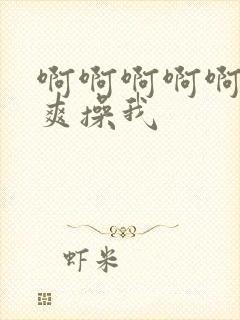 啊啊啊啊啊
爽操我
虾米